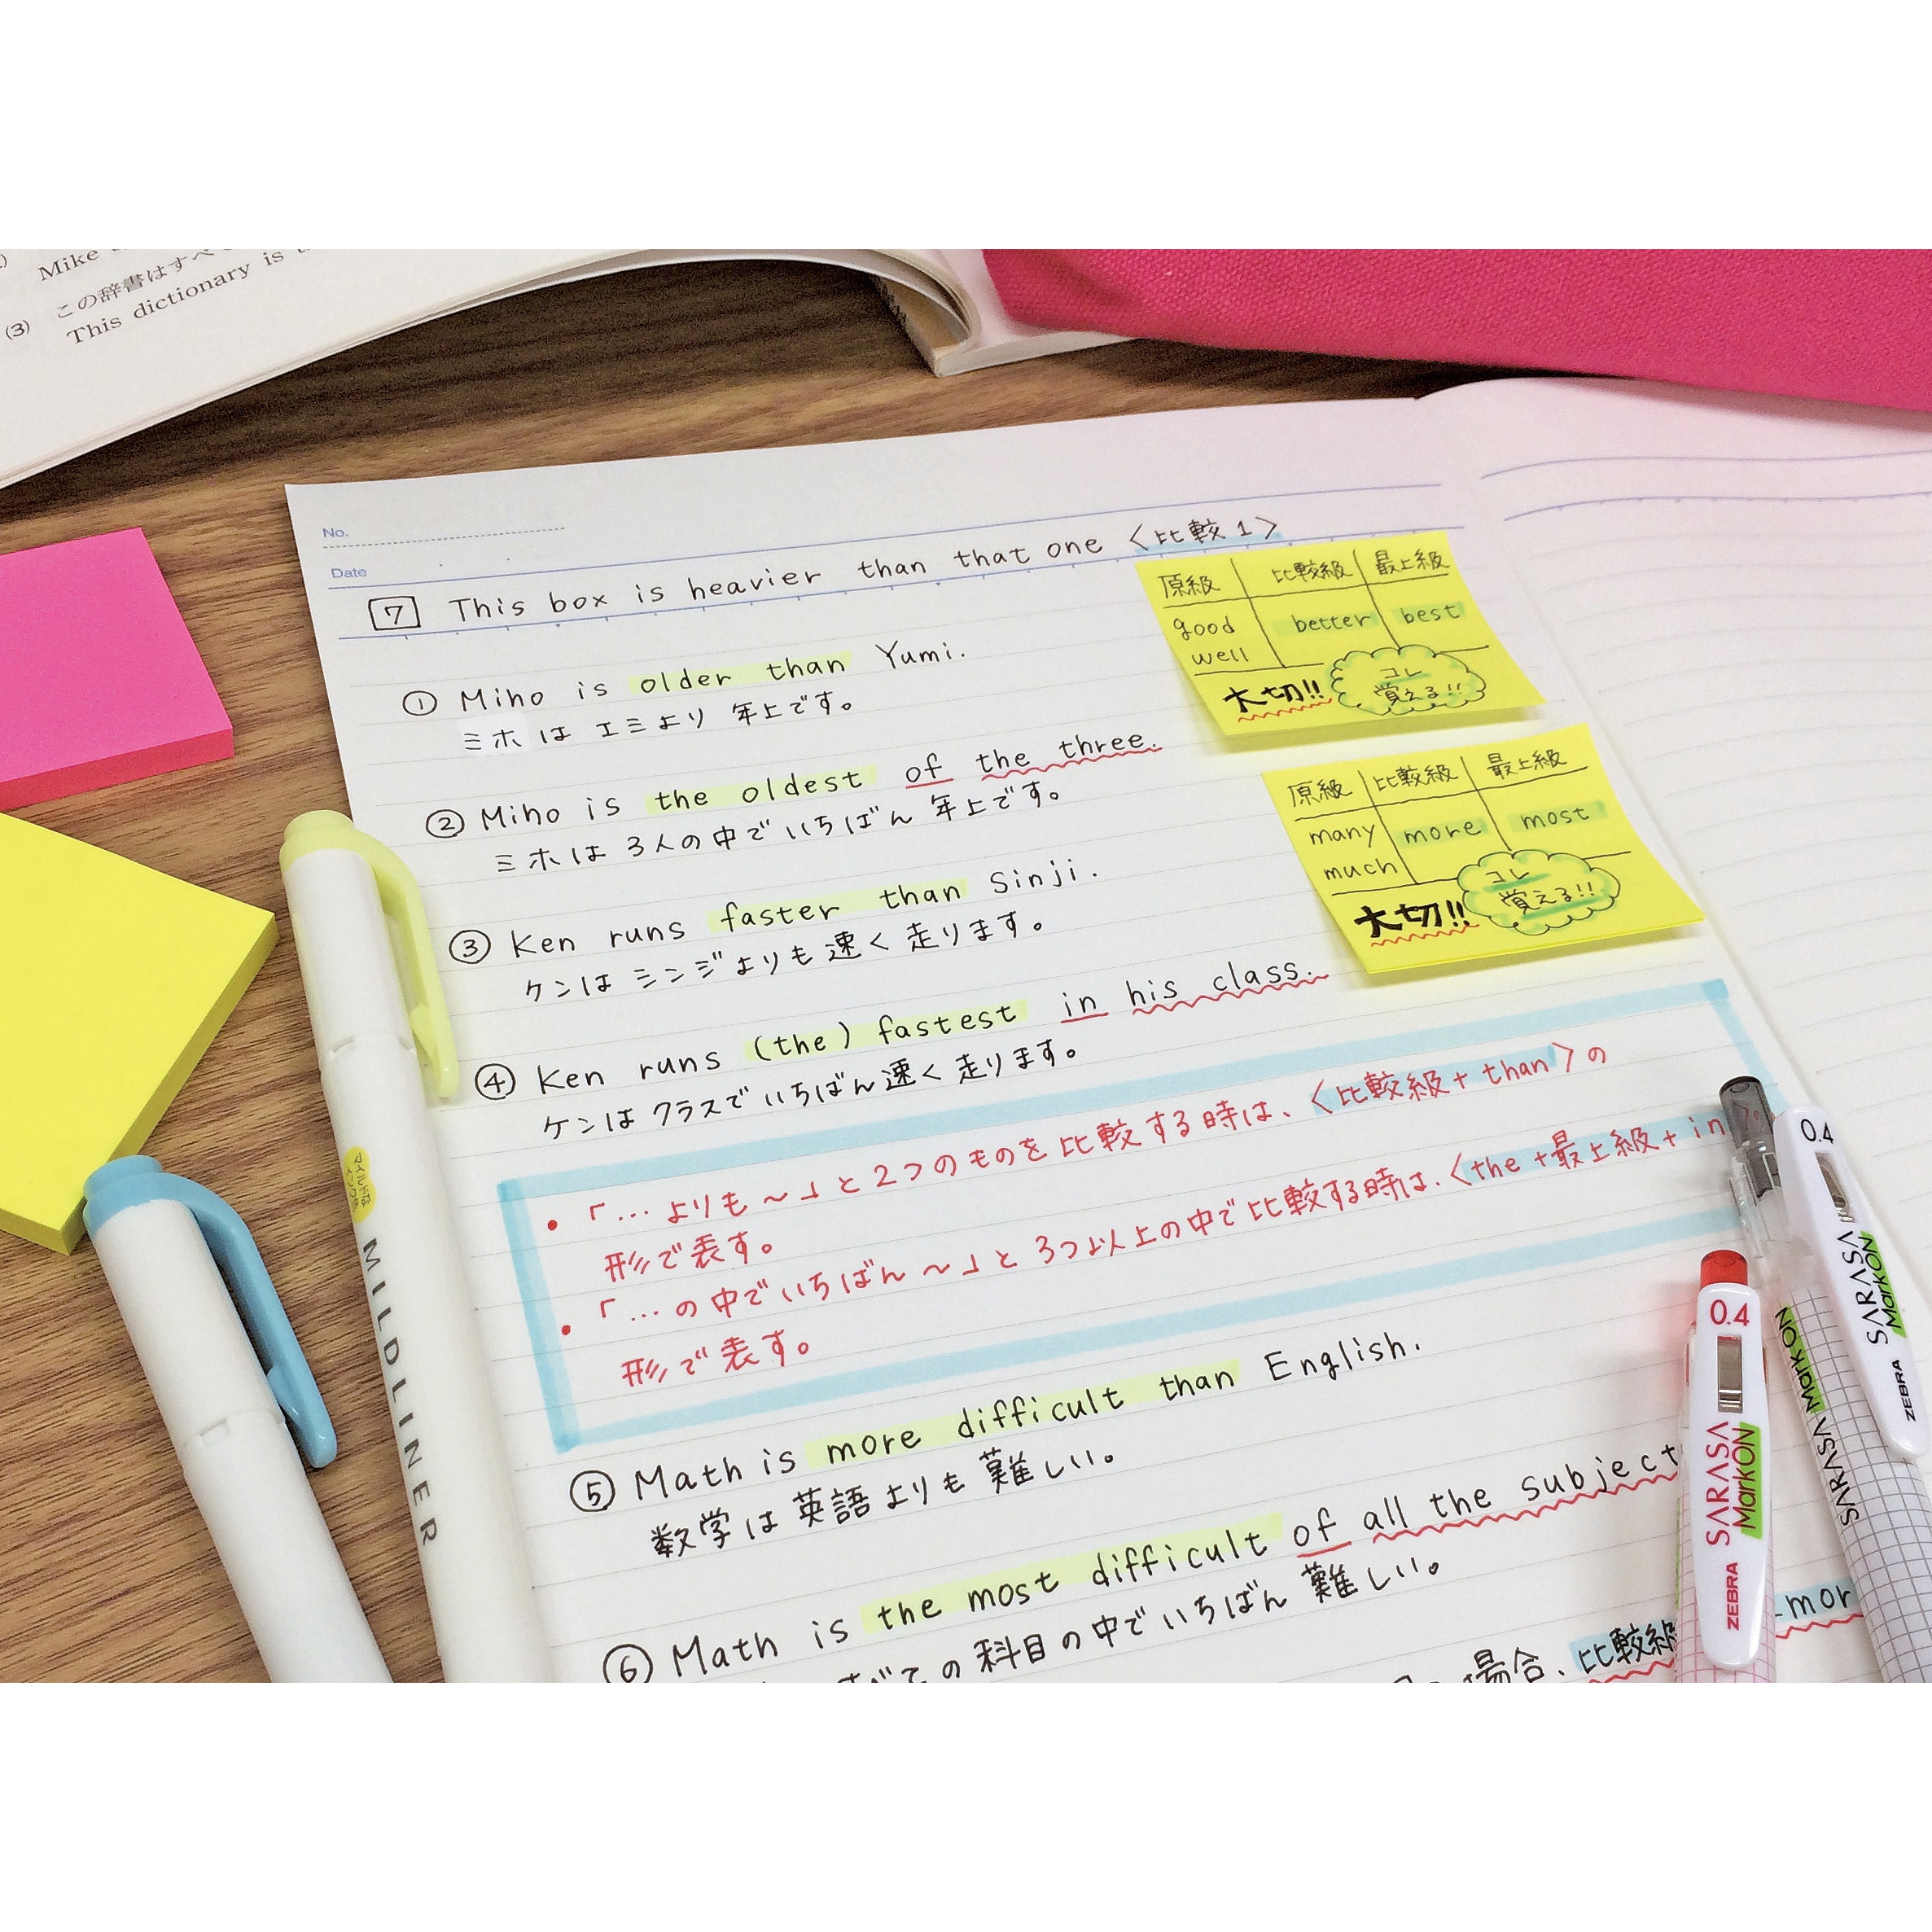 Mike
この辞書はすべ
(3) This dictionary is
No.
Date
7 This box is heavier than that one 〈比較1〉
① Miho is older than Yumi.
ミホは エミより 年上です。
② Miho is the oldest of the three.
ミホは 3人の中でいちばん 年上です。
③ Ken runs faster than Sinji.
ケンは シンジよりも 速く 走ります。
④ Ken runs (the) fastest in his class.
ケンは クラスでいちばん速く 走ります。
・「…よりも〜」と2つのものを 比較する時は、〈比較級+than〉の
形で表す。
・「…の中でいちばん〜」と 3つ以上の中で 比較する時は、〈the+最上級+in
形で表す。
⑤ Math is more difficult than English.
数学は 英語よりも 難しい。
⑥ Math is the most difficult of all the subject
すべての 科目の中でいちばん 難しい。
場合、比較級
mor
原級 比較級 最上級
good better best
well
大切!! コレ
覚える!!
原級 比較級 最上級
many more most
much
大切!! コレ
覚える!!
マイルドな
MILDLINER
0.4
SARASA
MarkON
ZEBRA
0.4
SARASA
MarkON
ZEBRA
SARASA MarkON